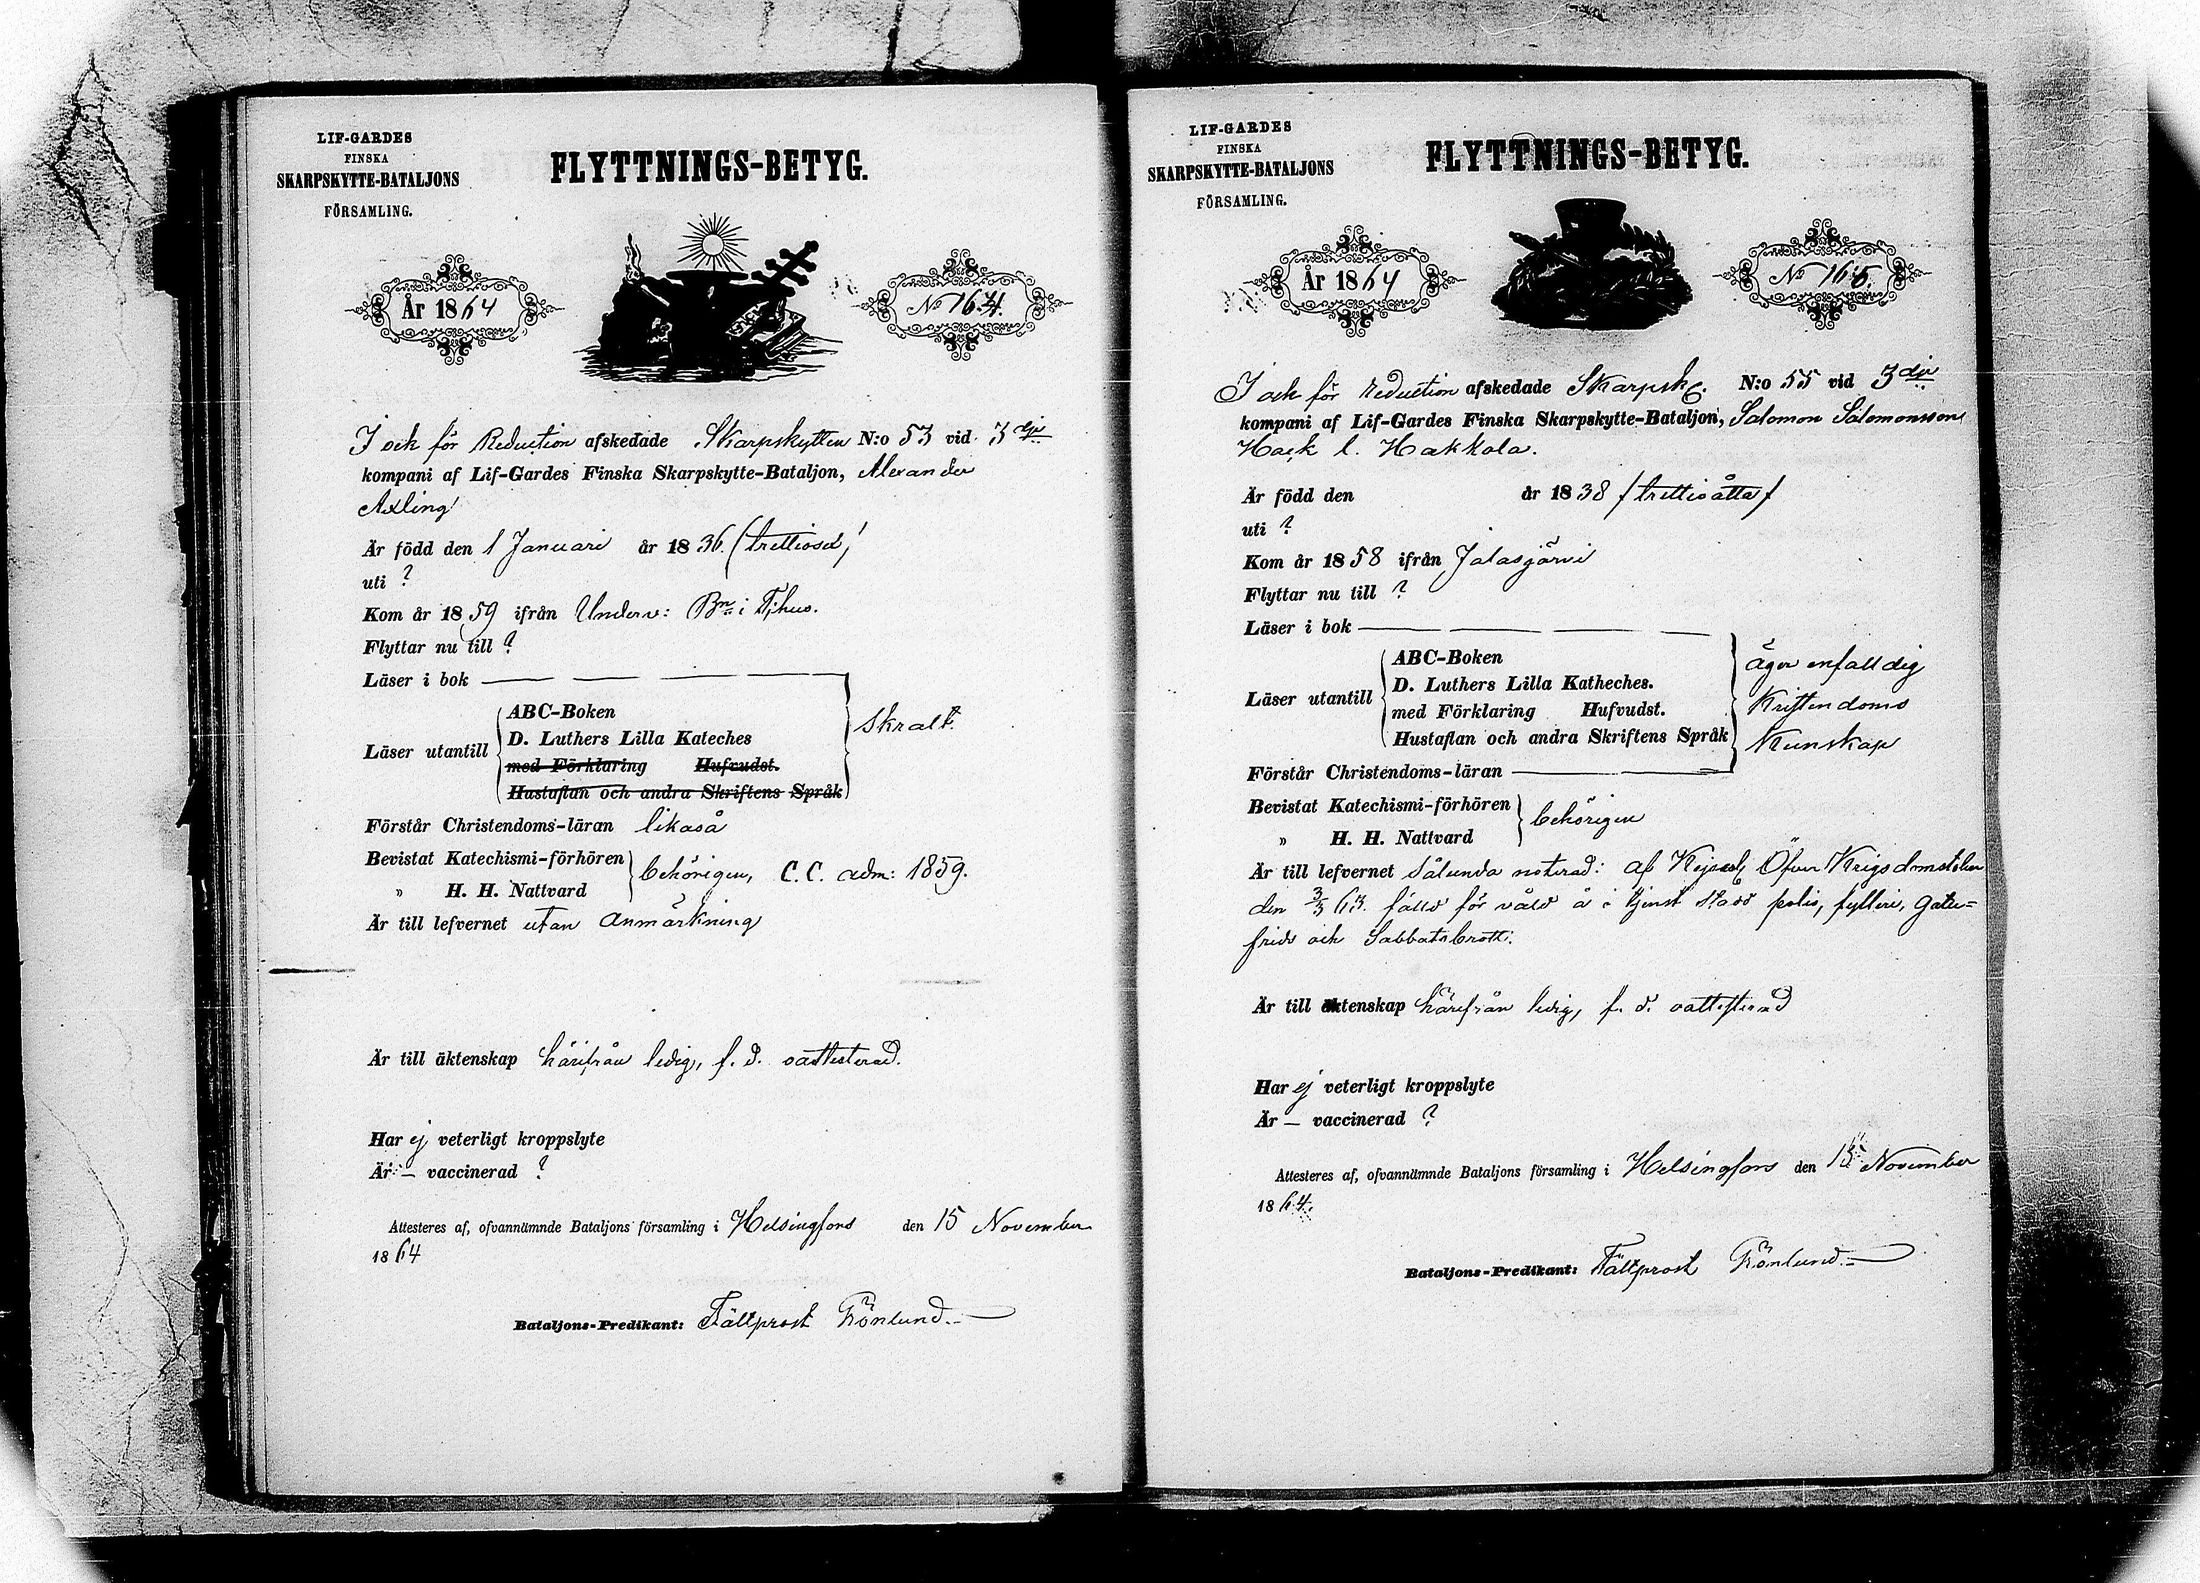 LIF-GARDES
FINSKA
SKARPSKYTTE-BATALJONS
FÖRSAMLING.
FLYTTNINGS-BETYG.
År 1864
No 164.
I och för Reduction afskedade Skarpskytten N:o 53 vid 3dje
kompani af Lif-Gardes Finska Skarpskytte-Bataljon, Alexander
Axling
Är född den 1 Januari år 1836. (trettiosex)
uti ?
Kom år 1859 ifrån Underv: Bn i Tjhus.
Flyttar nu till ?
Läser i bok
Läser utantill
ABC-Boken
D. Luthers Lilla Kateches
med Förklaring Hufvudst.
Hustaflan och andra Skriftens Språk
skralt.
Förstår Christendoms-läran likaså
Bevistat Katechismi-förhören
„ H. H. Nattvard
behörigen, C. C. adm: 1859.
Är till lefvernet utan anmärkning
Är till äktenskap härifrån ledig, f. d. oattesterad.
Har ej veterligt kroppslyte
Är — vaccinerad ?
Attesteres af, ofvannämnde Bataljons församling i Helsingfors den 15 November
1864
Bataljons-Predikant: Fältprost Grönlund.
LIF-GARDES
FINSKA
SKARPSKYTTE-BATALJONS
FÖRSAMLING.
FLYTTNINGS-BETYG.
År 1864
No 165.
I och för reduction afskedade Skarpsk. N:o 55 vid 3dje
kompani af Lif-Gardes Finska Skarpskytte-Bataljon, Salomon Salomonsson
Hack l. Hakkola.
Är född den år 1838 (trettioåtta)
uti ?
Kom år 1858 ifrån Jalasjärvi
Flyttar nu till ?
Läser i bok
Läser utantill
ABC-Boken
D. Luthers Lilla Katheches.
med Förklaring Hufvudst.
Hustaflan och andra Skriftens Språk
äger enfaldig
Kristendoms
Kunskap
Förstår Christendoms-läran
Bevistat Katechismi-förhören
„ H. H. Nattvard
behörigen
Är till lefvernet sålunda noterad: af Kejserl Öfver Krigsdomstolen
den 3/3 63 fälld för våld å i tjenst stadd polis, fylleri, gatu=
frids och Sabbatsbrott.
Är till äktenskap härifrån ledig, f. d. oattesterad
Har ej veterligt kroppslyte
Är — vaccinerad ?
Attesteres af, ofvannämnde Bataljons församling i Helsingfors den 15 November
1864.
Bataljons-Predikant: Fältprost Grönlund.